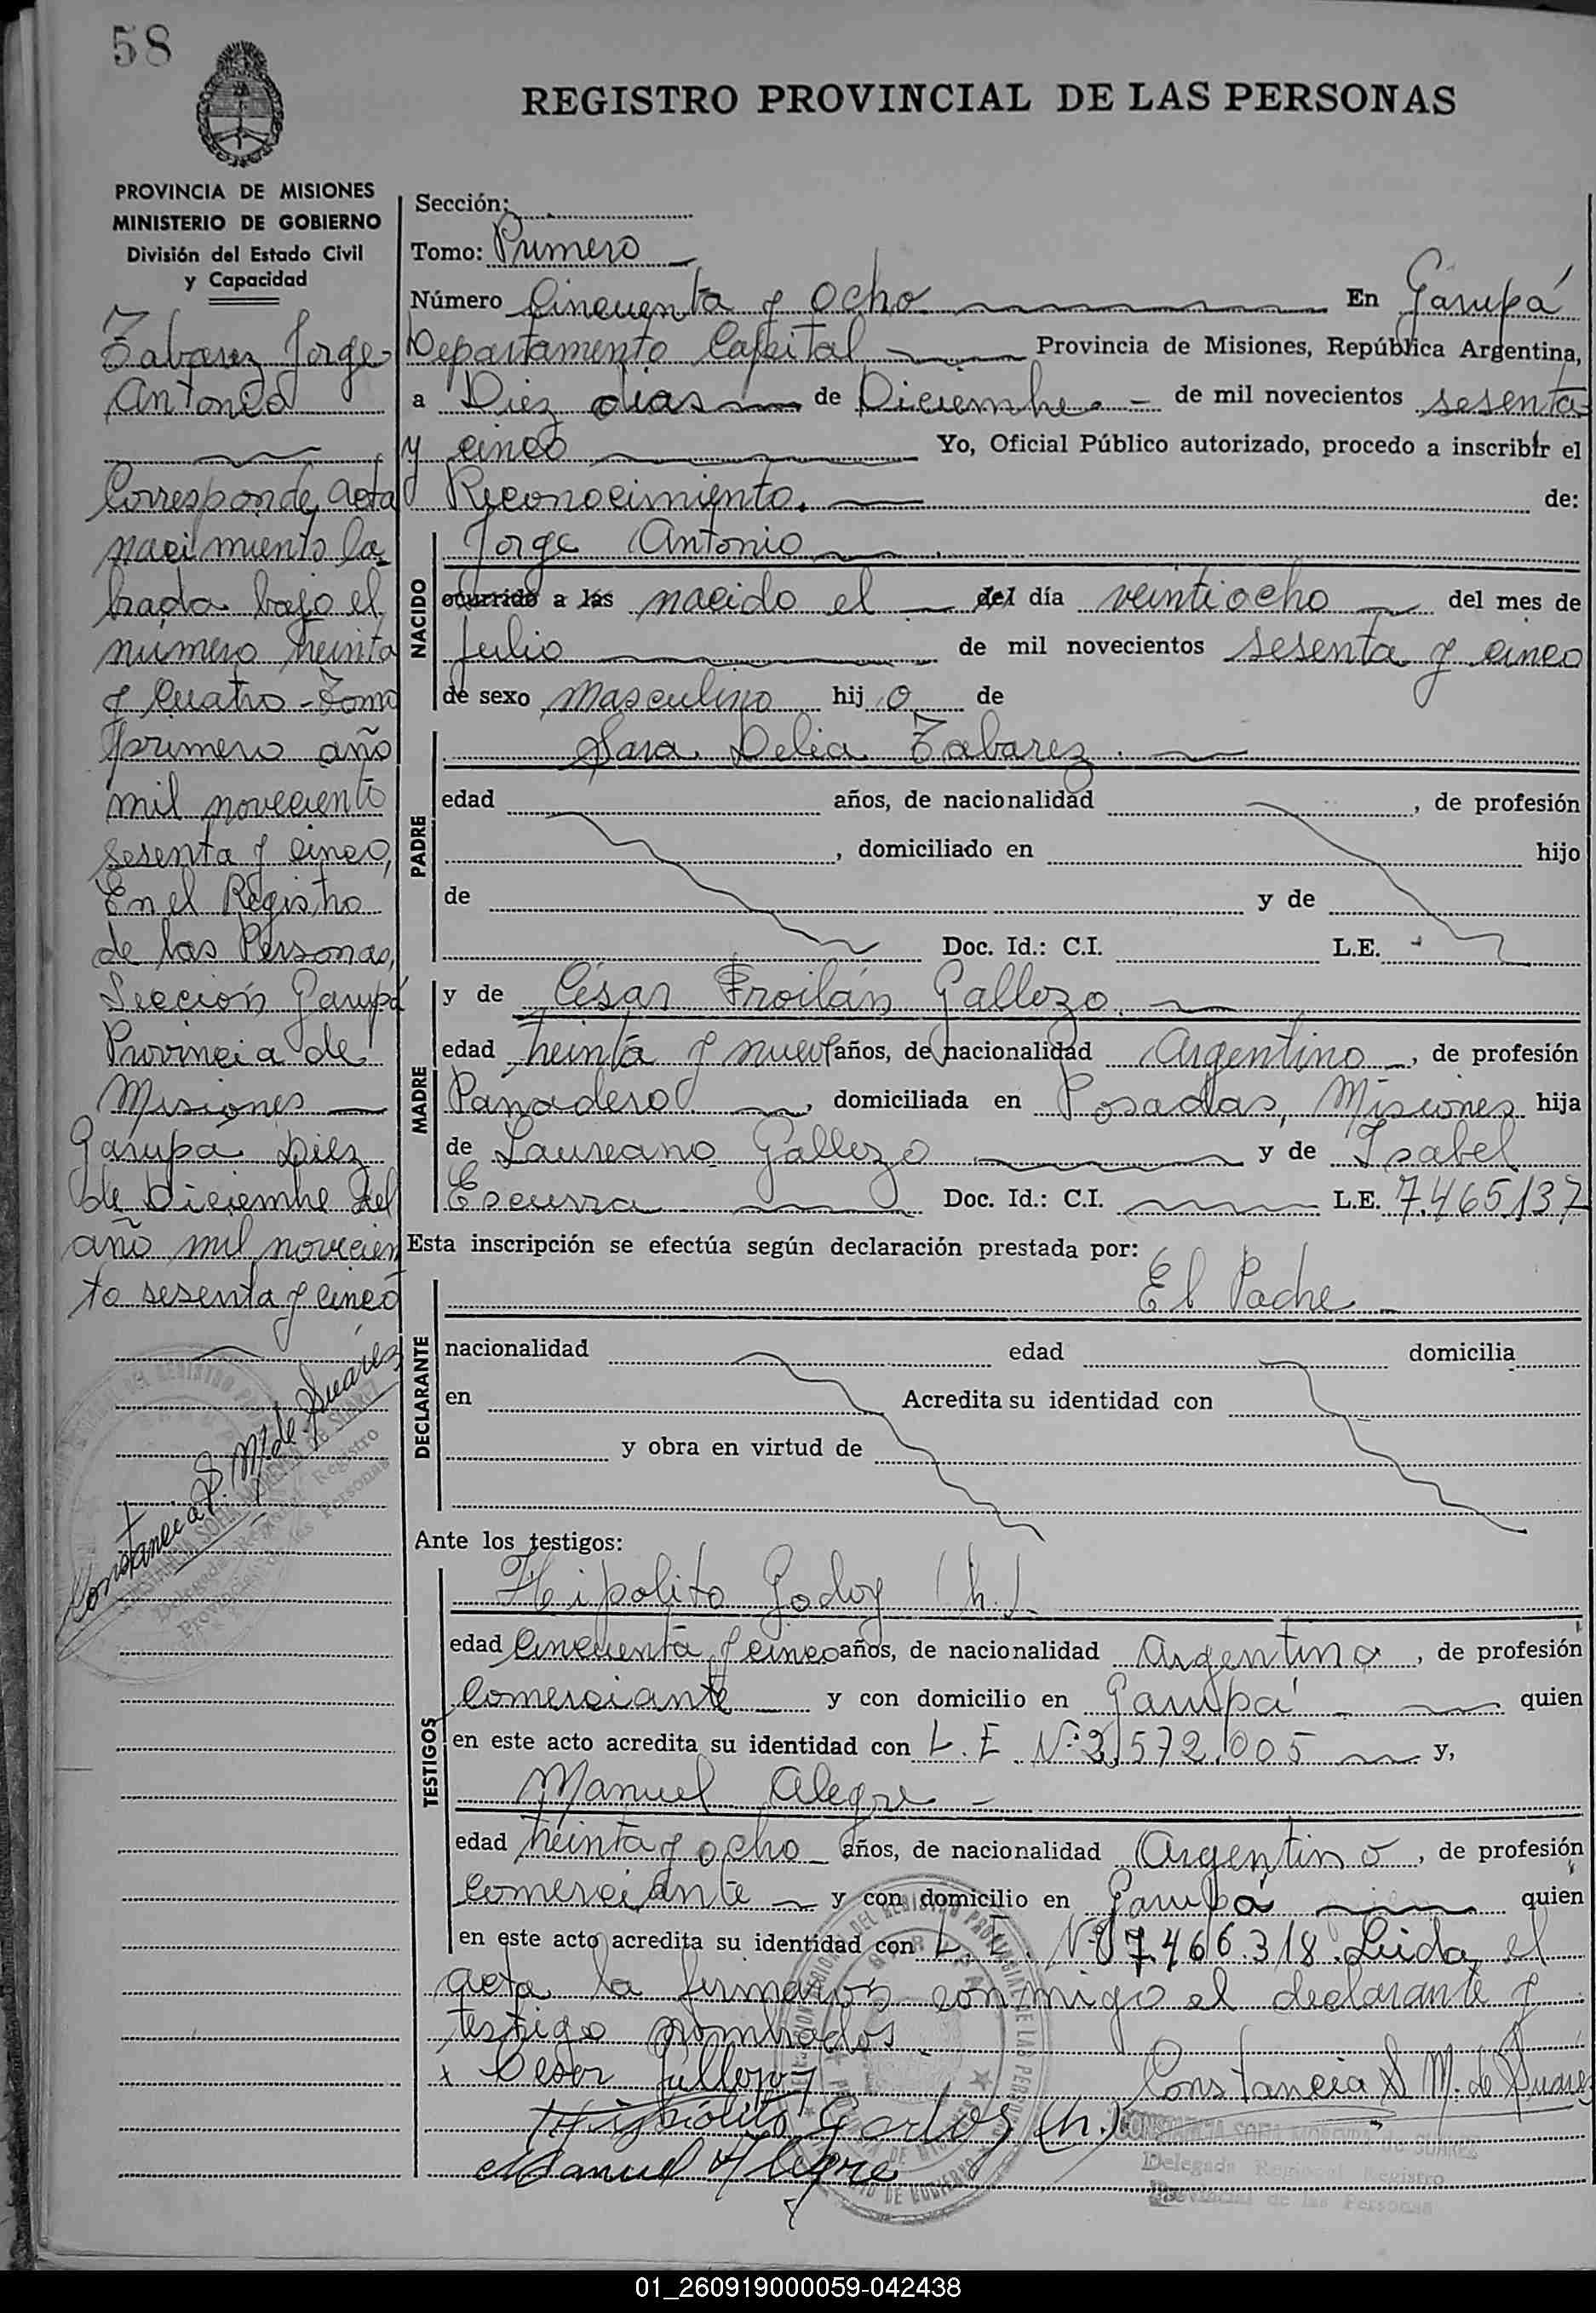 58
REGISTRO PROVINCIAL DE LAS PERSONAS
PROVINCIA DE MISIONES
MINISTERIO DE GOBIERNO
División del Estado Civil
y Capacidad
Tabarez Jorge
Antonio
Corresponde acta
nacimiento la
brada bajo el
número treinta
y cuatro - Tomo
primero año
mil noveciento
sesenta y cinco,
En el Registro
de las Personas,
Sección Garupá
Provincia de
Misiones
Garupá Diez
de Diciembre del
año mil novecien
to sesenta y cinco
Constancia S. M. de Suárez
Sección:
Tomo: Primero
Número Cincuenta y Ocho En Garupá
Departamento Capital Provincia de Misiones, República Argentina,
a Diez días de Diciembre de mil novecientos sesenta
y cinco Yo, Oficial Público autorizado, procedo a inscribir el
Reconocimiento. de:
NACIDO
Jorge Antonio
ocurrido a las nacido el del día veintiocho del mes de
Julio de mil novecientos sesenta y cinco
de sexo Masculino hij o de
PADRE
Sara Delia Tabarez.
edad años, de nacionalidad , de profesión
, domiciliado en hijo
de y de
Doc. Id.: C.I. L.E.
MADRE
y de César Froilán Gallozo
edad treinta y nueve años, de nacionalidad Argentino, de profesión
Panadero, domiciliada en Posadas, Misiones hija
de Laureano Gallozo y de Isabel
Escurra Doc. Id.: C.I. L.E. 7.465.137
Esta inscripción se efectúa según declaración prestada por:
DECLARANTE
El Padre
nacionalidad edad domicilia
en Acredita su identidad con
y obra en virtud de
Ante los testigos:
TESTIGOS
Hipolito Godoy (h.)
edad Cincuenta y cinco años, de nacionalidad Argentino, de profesión
Comerciante y con domicilio en Garupá quien
en este acto acredita su identidad con L. E. Nº 3.572.005 y,
Manuel Alegre
edad treinta y ocho años, de nacionalidad Argentino, de profesión
Comerciante y con domicilio en Garupá quien
en este acto acredita su identidad con L. E. Nº 7.466.318. Leida el
acta la firmaron conmigo el declarante y
testigo nombrados.
x Cesar Gallozo
Constancia S M. de Suarez
Hipólito Godoy (h.)
CONSTANCIA SOFIA MOREYRA DE SUAREZ
Delegada Regional Registro
Provincial de las Personas
Manuel Alegre
01_260919000059-042438